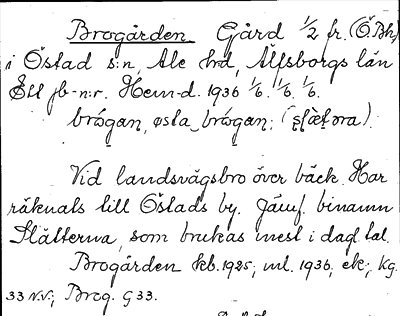 Brogården Gård 1/2 fr. (Ö Bhg)
i Östad s:n, Ale hd, Älfsborgs län
Ett jb-n:r. Hem-d. 1936 1/6. 1/6. 1/6.
brógan, østa brógan; (slæ̀təra).
Vid landsvägsbro över bäck. Har
räknats till Östads by. Jämf. binamn
Slätterna, som brukas mest i dagl. tal.
Brogården kb. 1925; ml. 1936, ek; Kg.
33 N.V.; Brog. G 33.